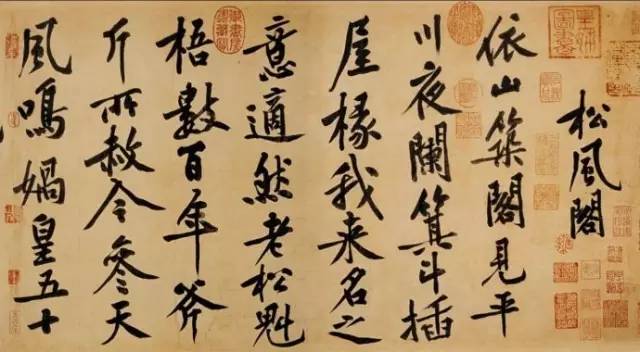 松風閣
依山築閣見平
川夜闌箕斗插
屋椽我來名之
意適然老松魁
梧數百年斧
斤所赦今參天
風鳴媧皇五十